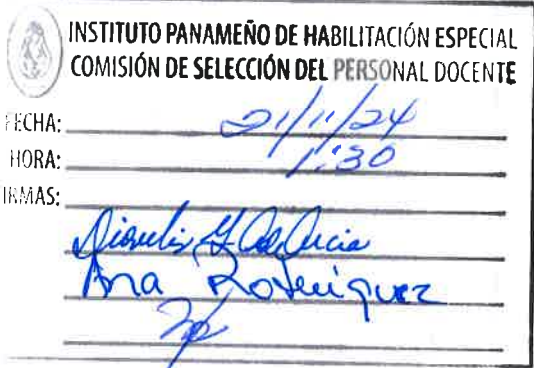 INSTITUTO PANAMEÑO DE HABILITACIÓN ESPECIAL
COMISIÓN DE SELECCIÓN DEL PERSONAL DOCENTE
FECHA: 21/11/24
HORA: 1:30
IRMAS:
Ana Rodríguez